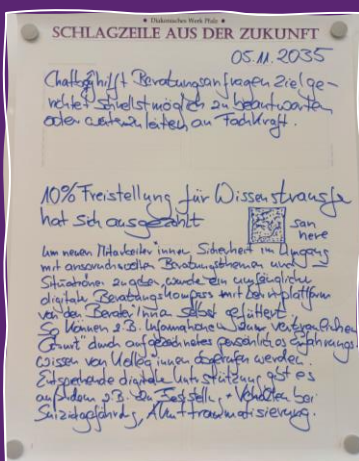 • Diakonisches Werk Pfalz •
SCHLAGZEILE AUS DER ZUKUNFT
05.11.2035
Chatbot hilft Beratungsanfragen zielge-
richtet schnellstmöglich zu beantworten
oder weiterzuleiten an Fachkraft.
10% Freistellung für Wissenstransfer
hat sich ausgezahlt
Um neuen Mitarbeiter*innen Sicherheit im Umgang
mit anspruchsvollen Beratungsthemen und
Situationen zu geben, wurde ein umfänglicher
digitaler Beratungskompass mit Lernplattform
von den Berater*innen selbst gefüttert.
So können z.B. Informationen zum vertraulichen
durch aufgezeichnetes persönliches Erfahrungs-
wissen von Kolleg*innen abgerufen werden.
Entsprechende digitale Unterstützung gibt es
außerdem z.B. zu Feststell. + Verhalten bei
Suizidgefährdg, Akuttraumatisierung.